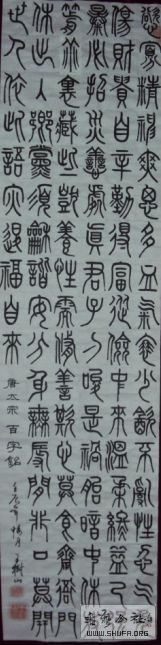 慾寡精神爽思多血氣衰少飲不亂性忍氣免
傷財貴自辛勤得富從儉中來溫柔終益己強
暴必招災善處真君子刁唆是禍胎暗中休使
箭乖裏藏些獃養性需修善欺心莫食齋衙門
休出入鄉黨須和諧安分身無辱閒非口莫開
世人依此語災退福自來
唐太宗百字銘
WWW.SHUFA.ORG